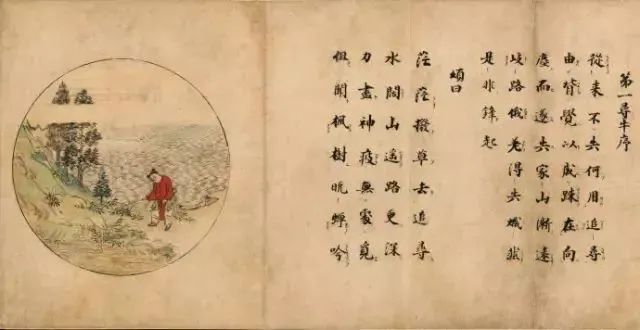 第一尋牛序
從来不失何用追尋
由背覺以成踈在向
塵而遂失家山漸遠
歧路俄差得失熾然
是非鋒起
頌曰
茫茫撥草去追尋
水闊山遥路更深
力盡神疲無處覓
但聞楓樹晩蟬吟